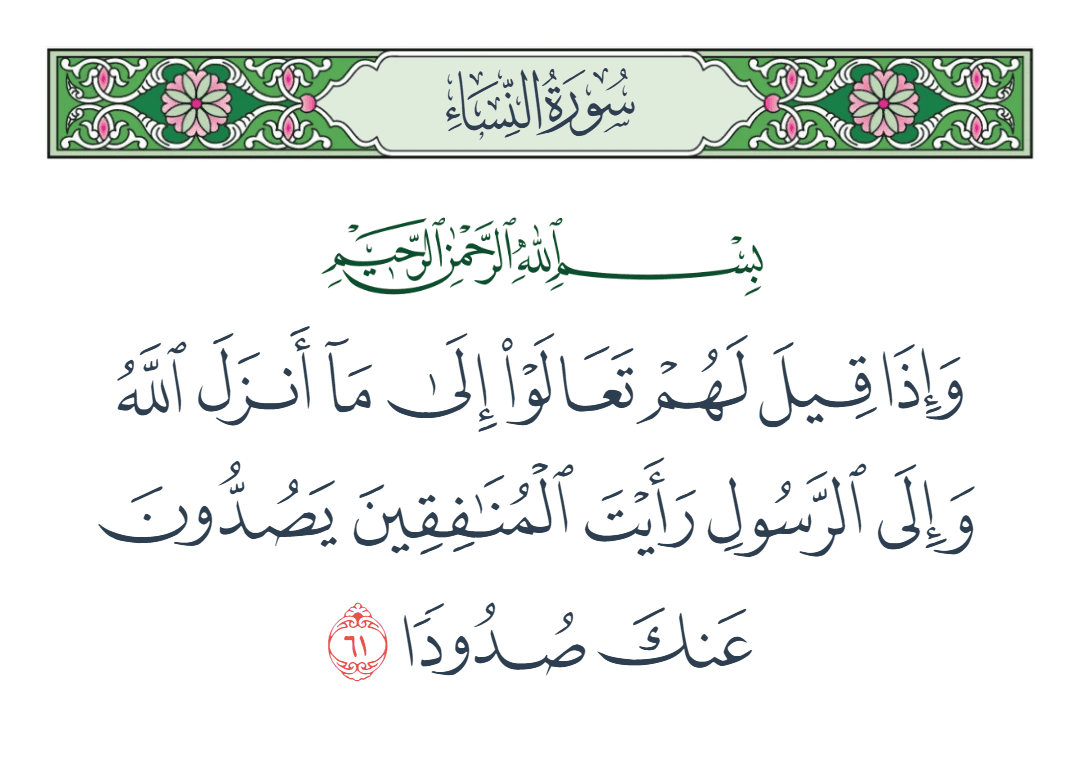 سُورَةُ النِّسَاءِ
بِسْمِ ٱللَّهِ ٱلرَّحْمَٰنِ ٱلرَّحِيمِ
وَإِذَا قِيلَ لَهُمْ تَعَالَوْا۟ إِلَىٰ مَآ أَنزَلَ ٱللَّهُ
وَإِلَى ٱلرَّسُولِ رَأَيْتَ ٱلْمُنَـٰفِقِينَ يَصُدُّونَ
عَنكَ صُدُودًا ٦١